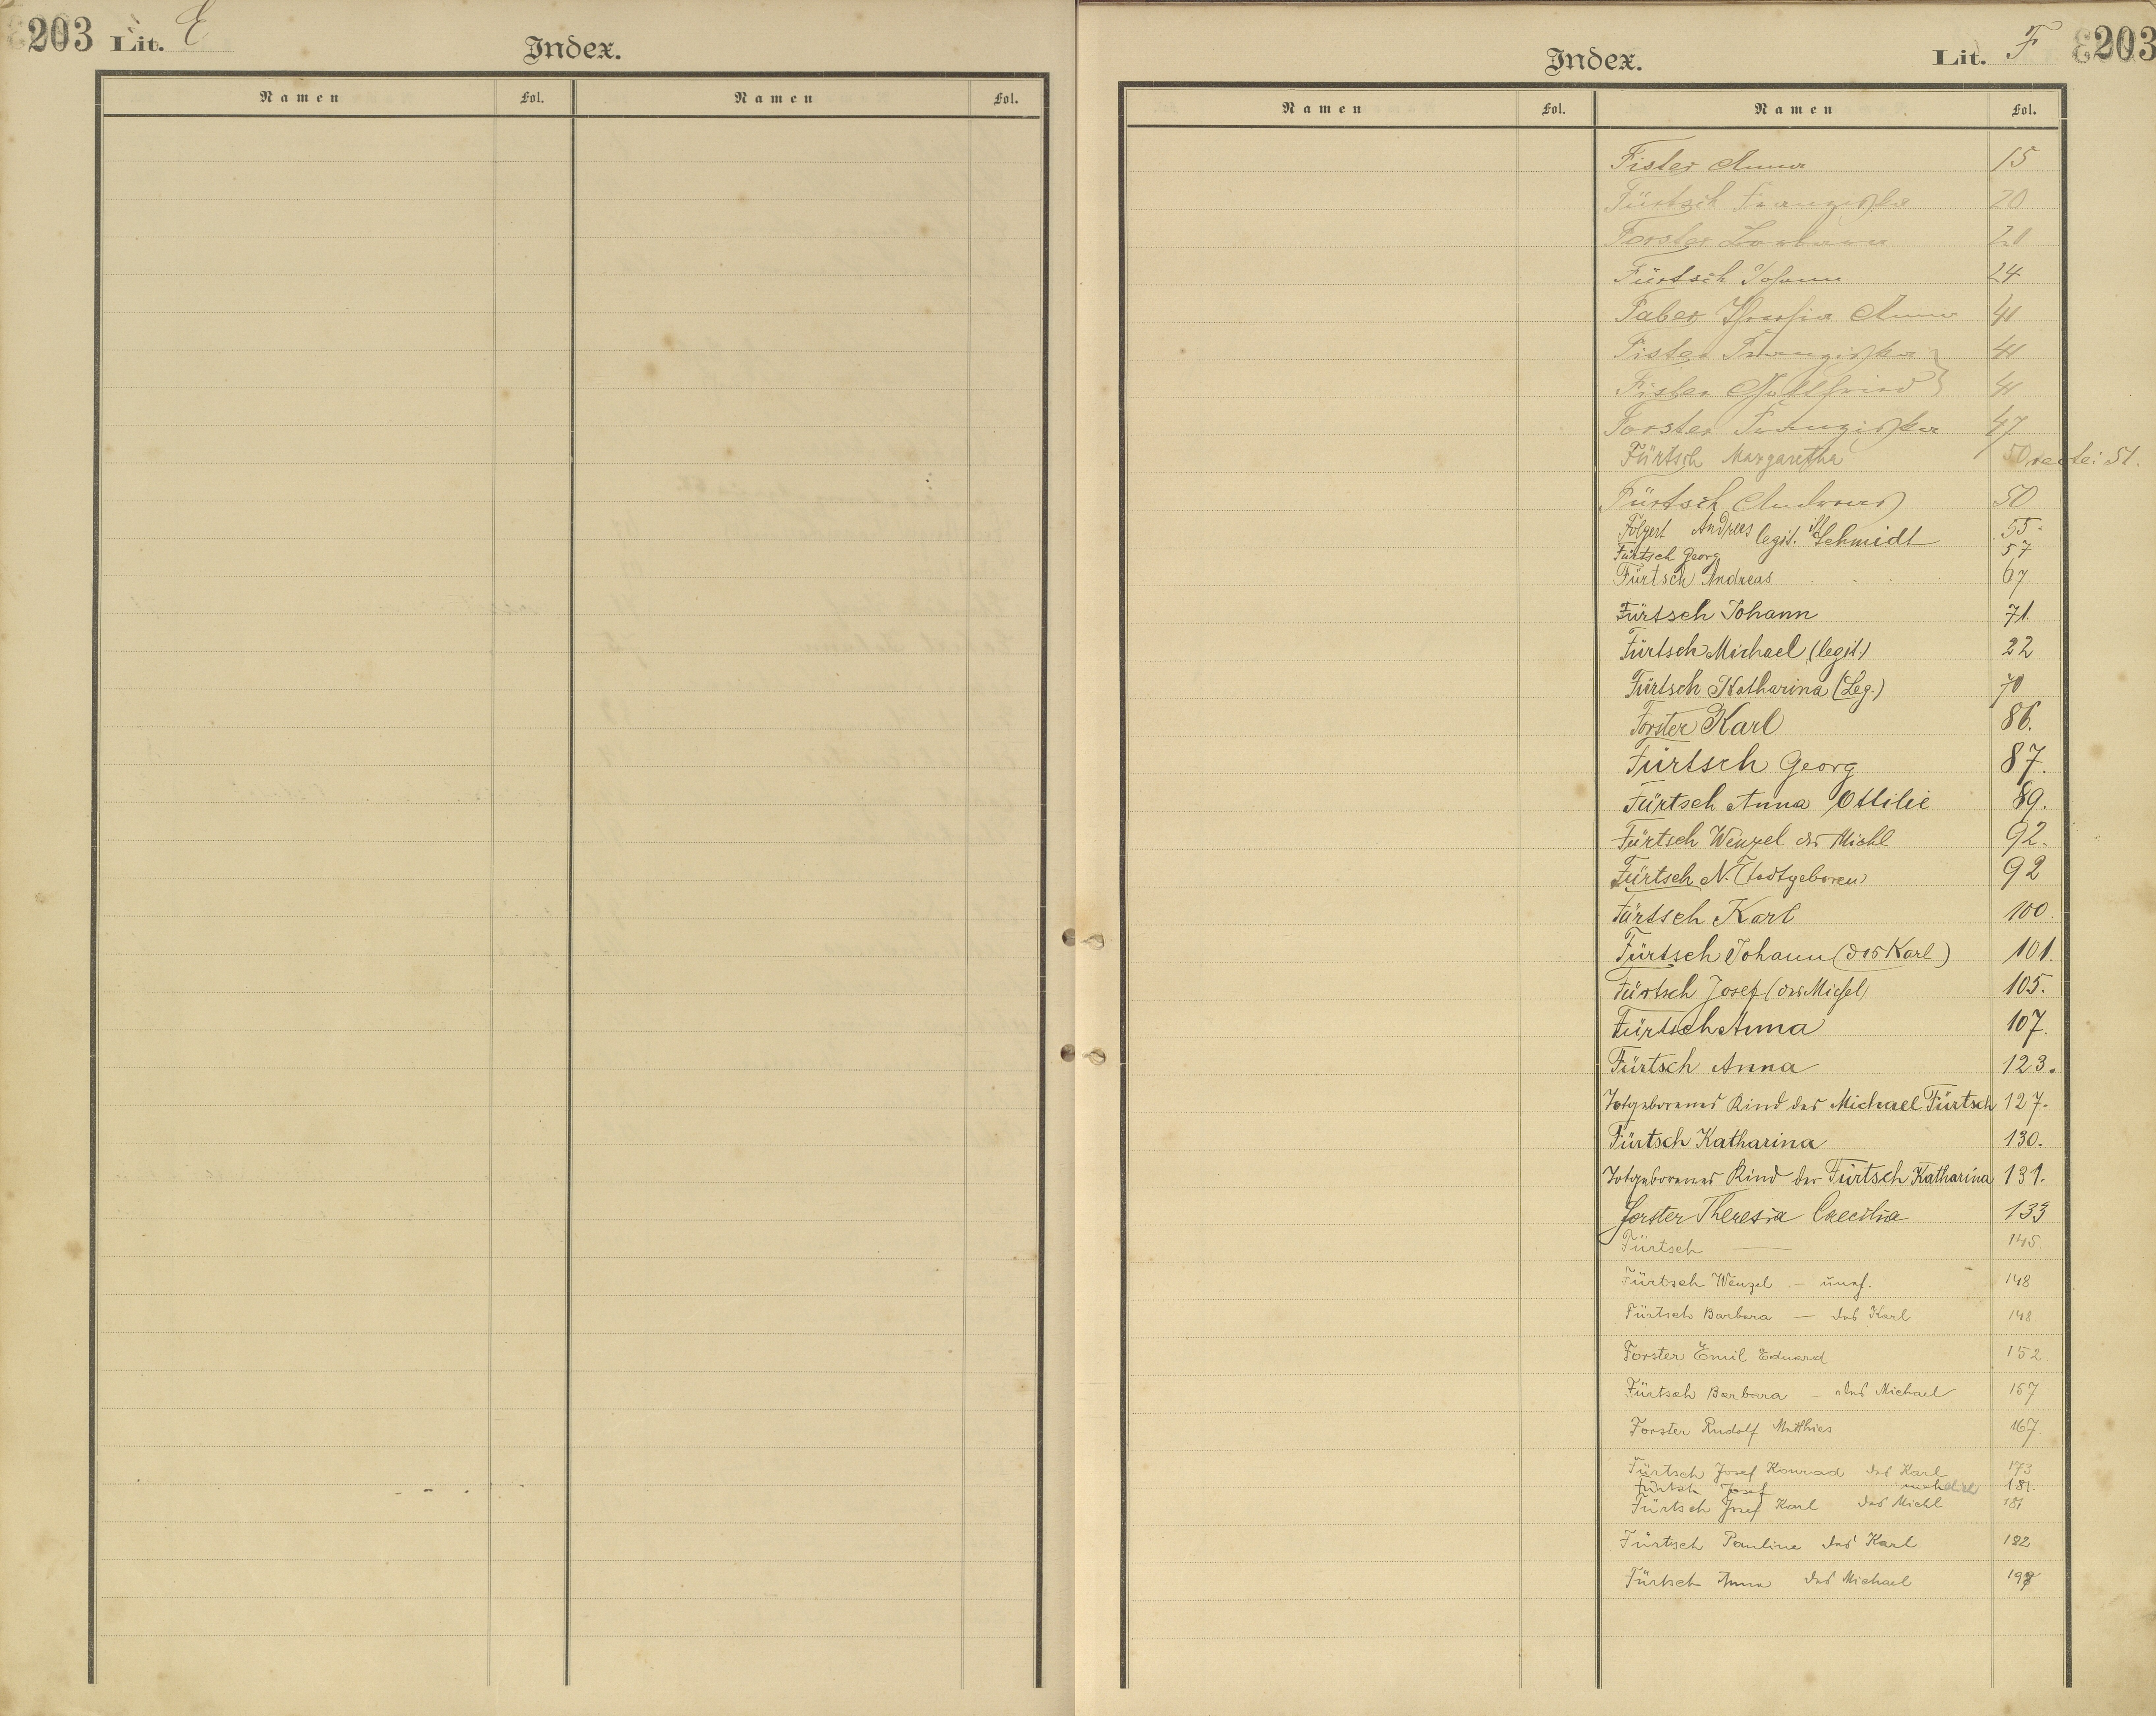 203 Lit. E
Index.
Namen Fol. Namen Fol.
Index.
Lit. F 203
Namen Fol. Namen Fol.
Fister Anna 15
Fürtsch Franziska 20
Forster Barbara 21
Fürtsch Johann 24
Faber Theresia Anna 41
Fister Franziska 41
Fister Gottfried 41
Forster Franziska 47
Fürtsch Margaretha 50 recte: 51.
Fürtsch Andreas 50
Folgert Andreas legit. Schmidt 55.
Fürtsch Georg 57
Fürtsch Andreas 67.
Fürtsch Johann 71.
Fürtsch Michael (legit.) 22
Fürtsch Katharina (Leg.) 70
Forster Karl 86.
Fürtsch Georg 87.
Fürtsch Anna Ottilie 89.
Fürtsch Wenzel des Michl 92.
Fürtsch N. (todtgeboren) 92
Fürtsch Karl 100.
Fürtsch Johann (des Karl) 101.
Fürtsch Josef (des Michel) 105.
Fürtsch Anna 107.
Fürtsch Anna 123.
Totgeborenes Kind des Michael Fürtsch 127.
Fürtsch Katharina 130.
Totgeborenes Kind der Fürtsch Katharina 131.
Forster Theresia Caecilia 133
Fürtsch — 145.
Fürtsch Wenzel – unef. 148
Fürtsch Barbara — des Karl 148.
Forster Emil Eduard 152
Fürtsch Barbara – des Michael 157
Forster Rudolf Matthias 167
Fürtsch Josef Konrad des Karl 173
Fürtsch Josef 181.
Fürtsch Josef Karl des Michl 181
Fürtsch Pauline des Karl 182
Fürtsch Anna des Michael 197